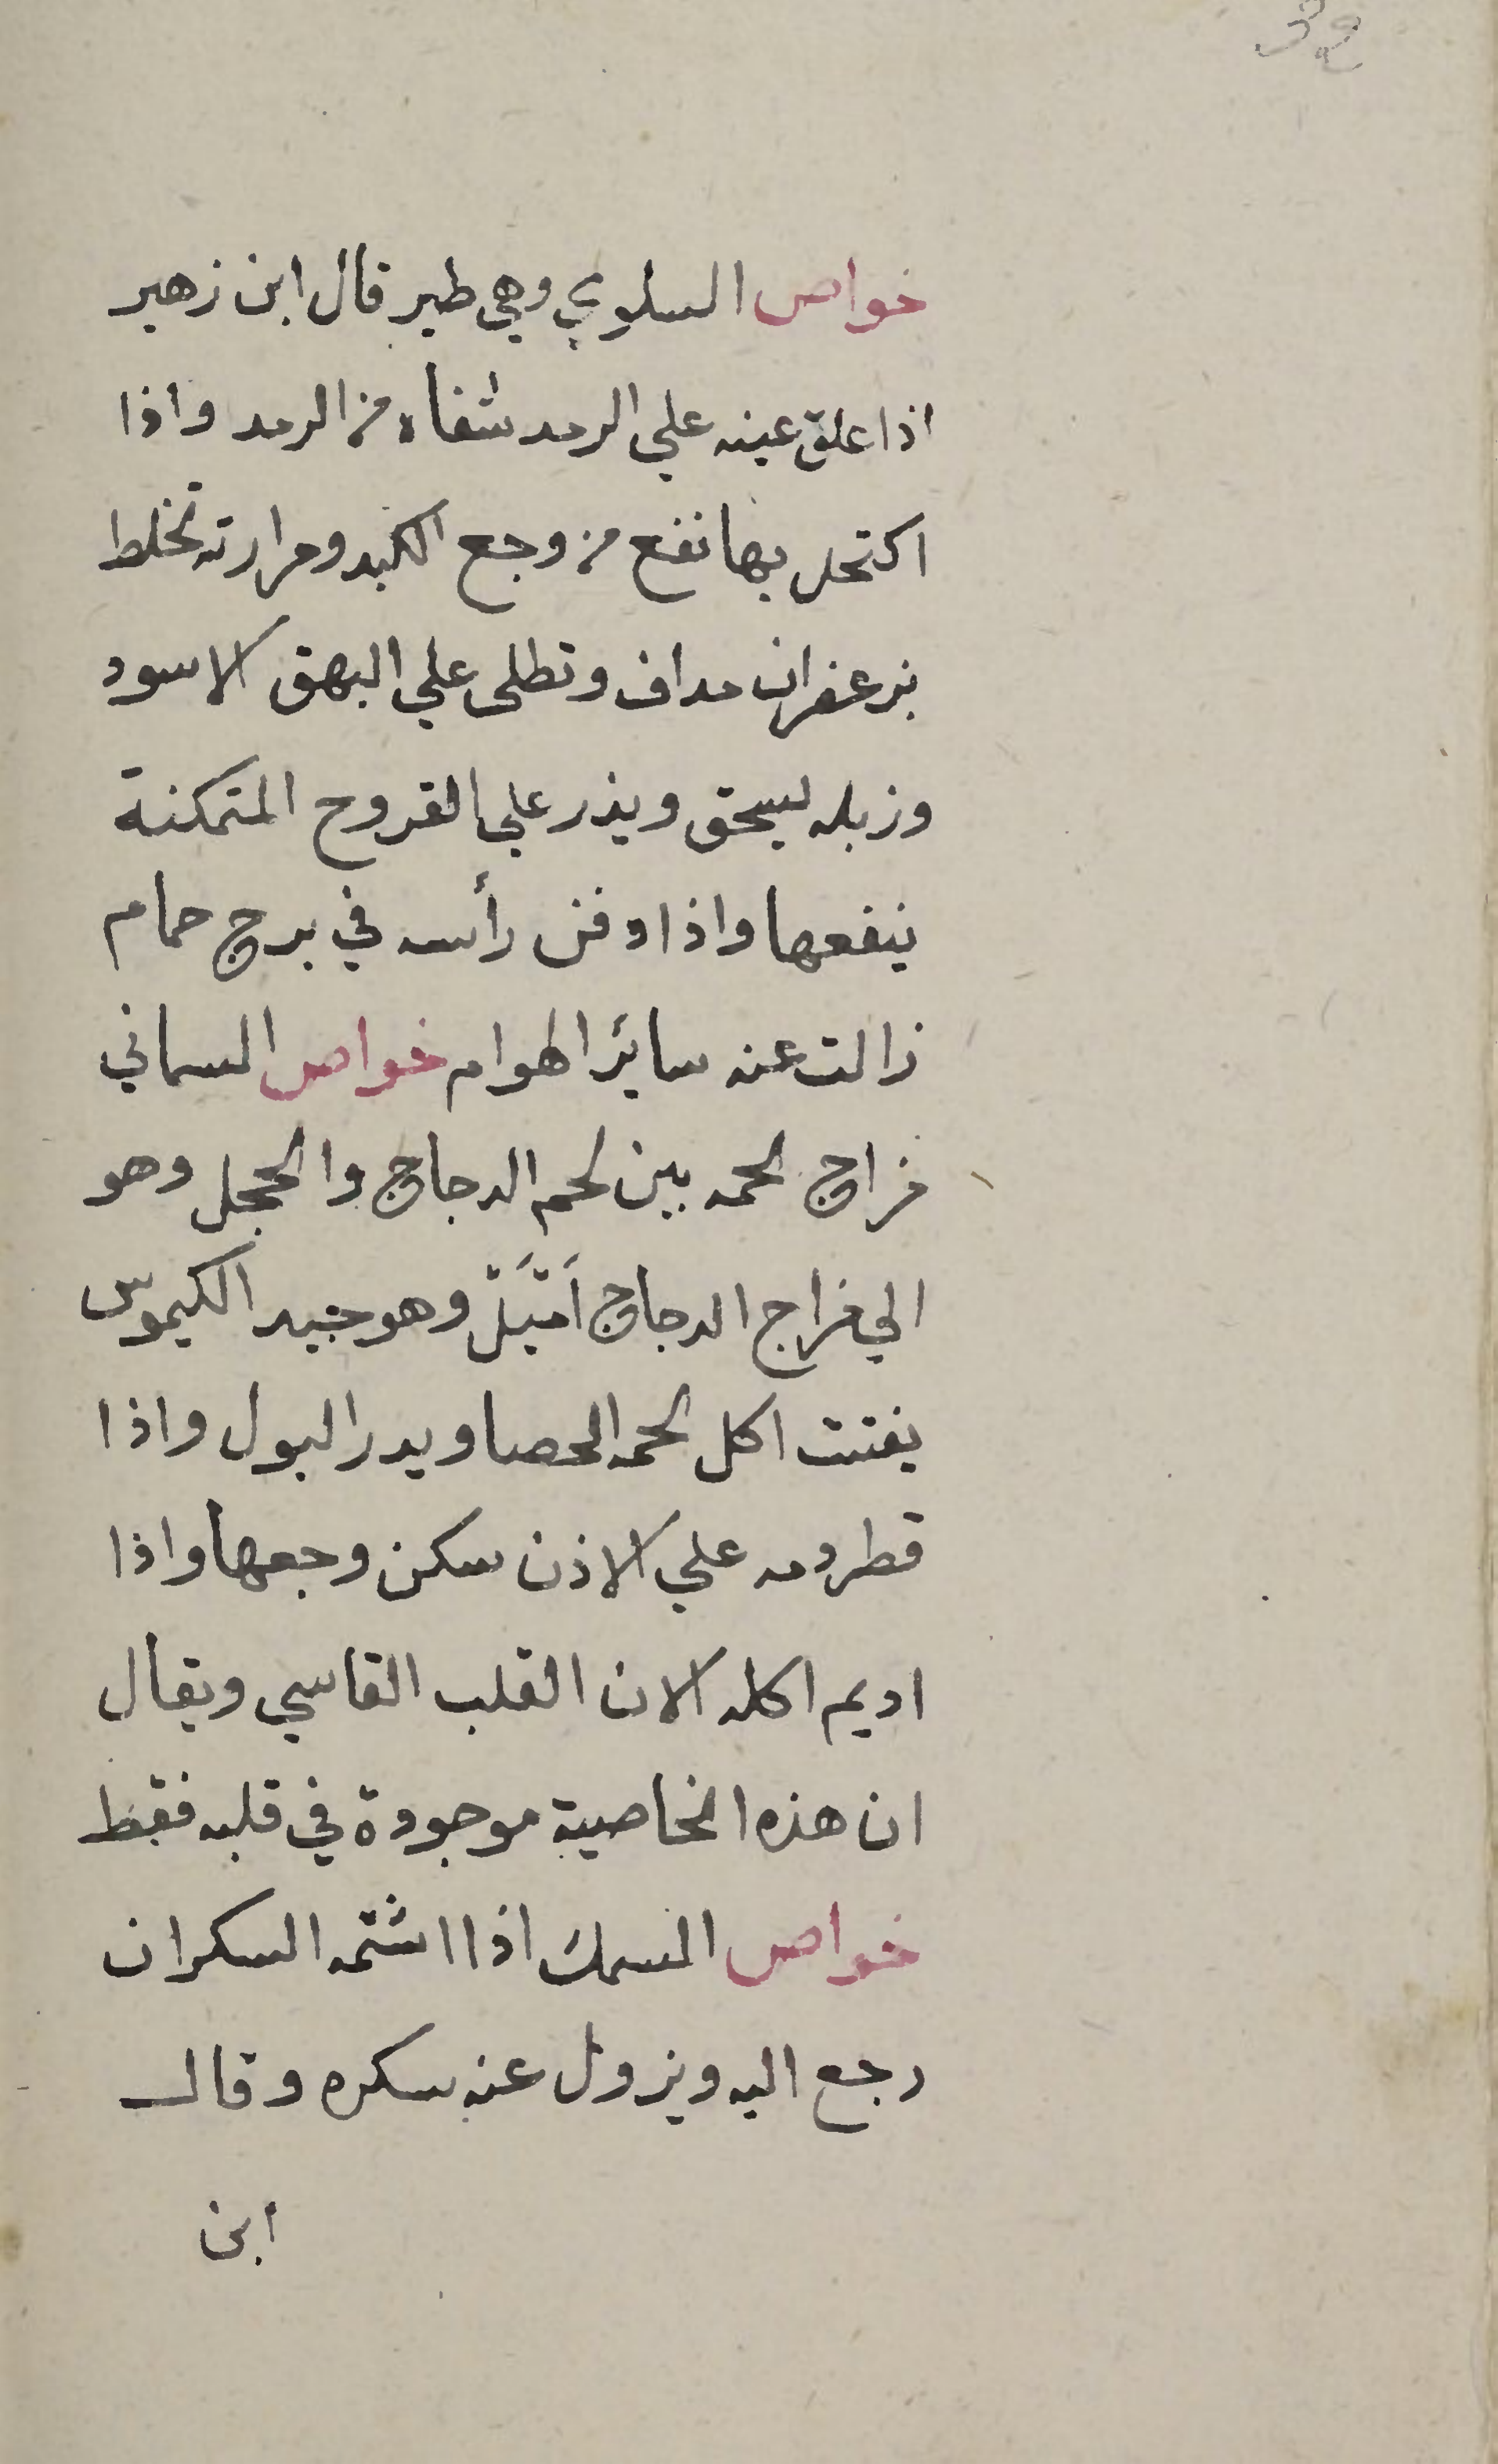 32
خواص السلوي وهي طير قال ابن زهير
اذا علق عينه علي الرمد شفاه من الرمد واذا
اكتحل بها نفع من وجع الكبد ومرارته تخلط
بزعفران مداف وتطلى علي البهق الاسود
وزبله يسحق ويذر علي القروح المتمكنة
ينفعها واذا دفن رأسه في برج حمام
زالت عنه سائر الهوام خواص السماني
مزاج لحمه بين لحم الدجاج والحجل وهو
الي مزاج الدجاج اَمْيَلْ وهو جيد الكيموس
يفتت اكل لحمه الحصا ويدر البول واذا
قطر دمه علي الاذن سكن وجعها واذا
اديم اكله الان القلب القاسي ويقال
ان هذه الخاصية موجودة في قلبه فقط
خواص السمك اذا اشتمه السكران
رجع اليه ويزول عنه سكره وقال
ابن